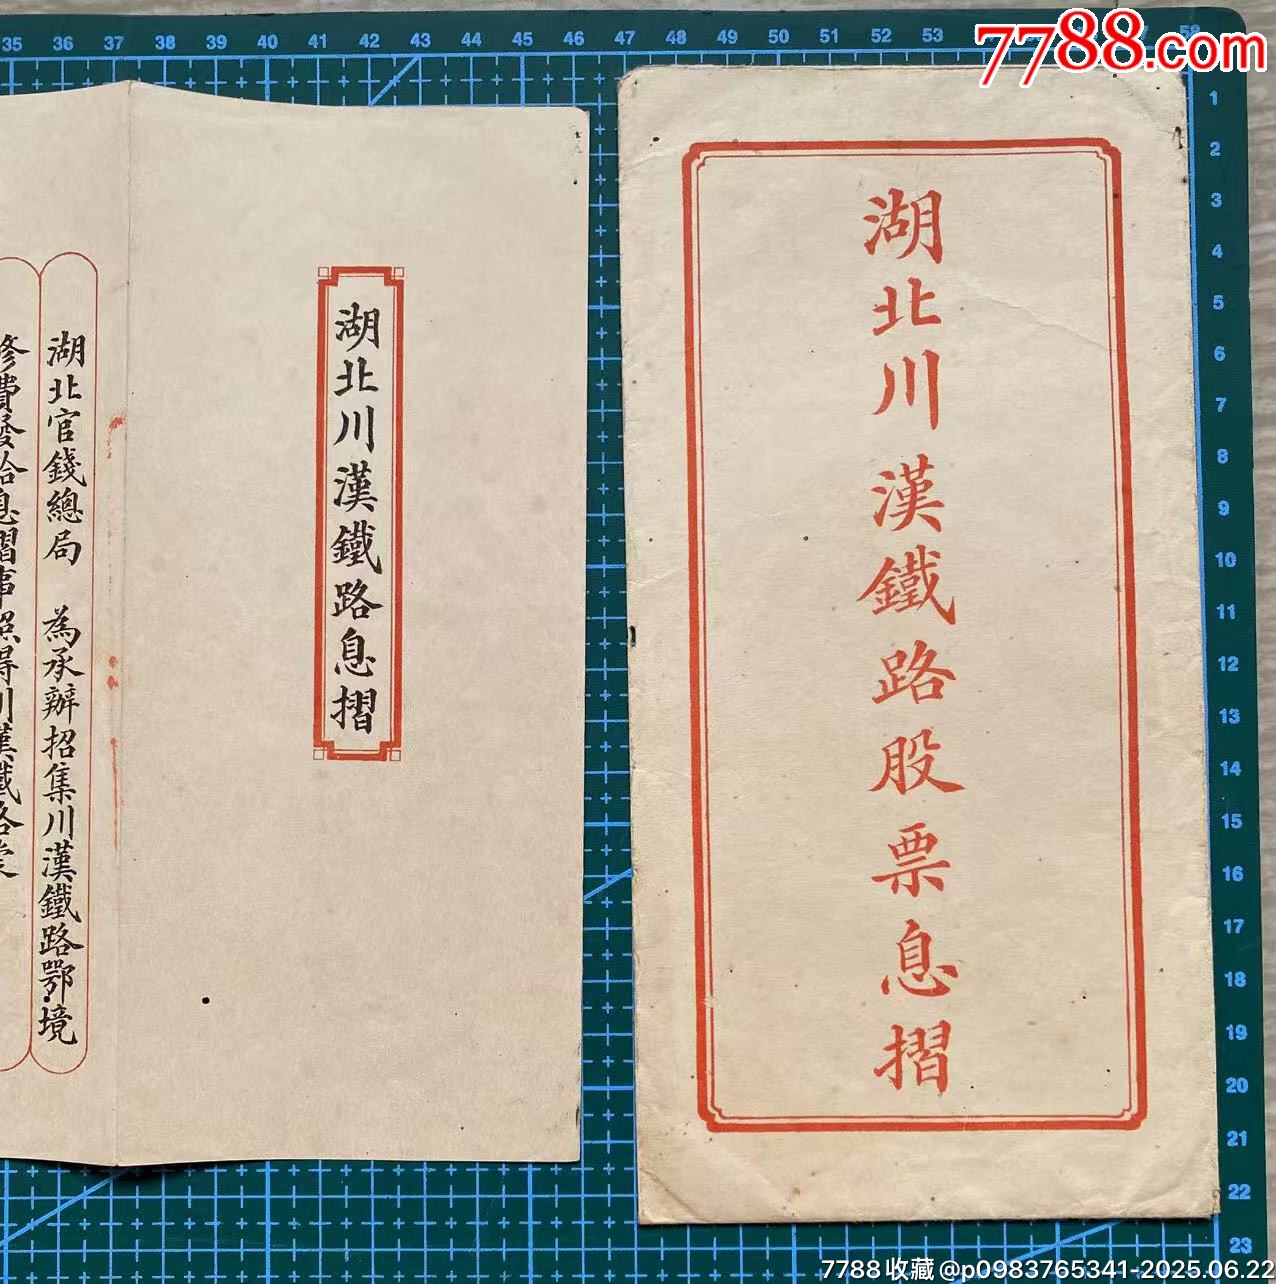 7788.com
湖北川漢鐵路股票息摺
湖北川漢鐵路息摺
湖北官錢總局 為承辦招集川漢鐵路鄂境
費發給息摺事照得川漢鐵路
35 36 37 38 39 40 41 42 43 44 45 46 47 48 49 50 51 52 53
1
2
3
4
5
6
7
8
9
10
11
12
13
14
15
16
17
18
19
20
21
22
23
7788收藏@p0983765341-2025.06.22